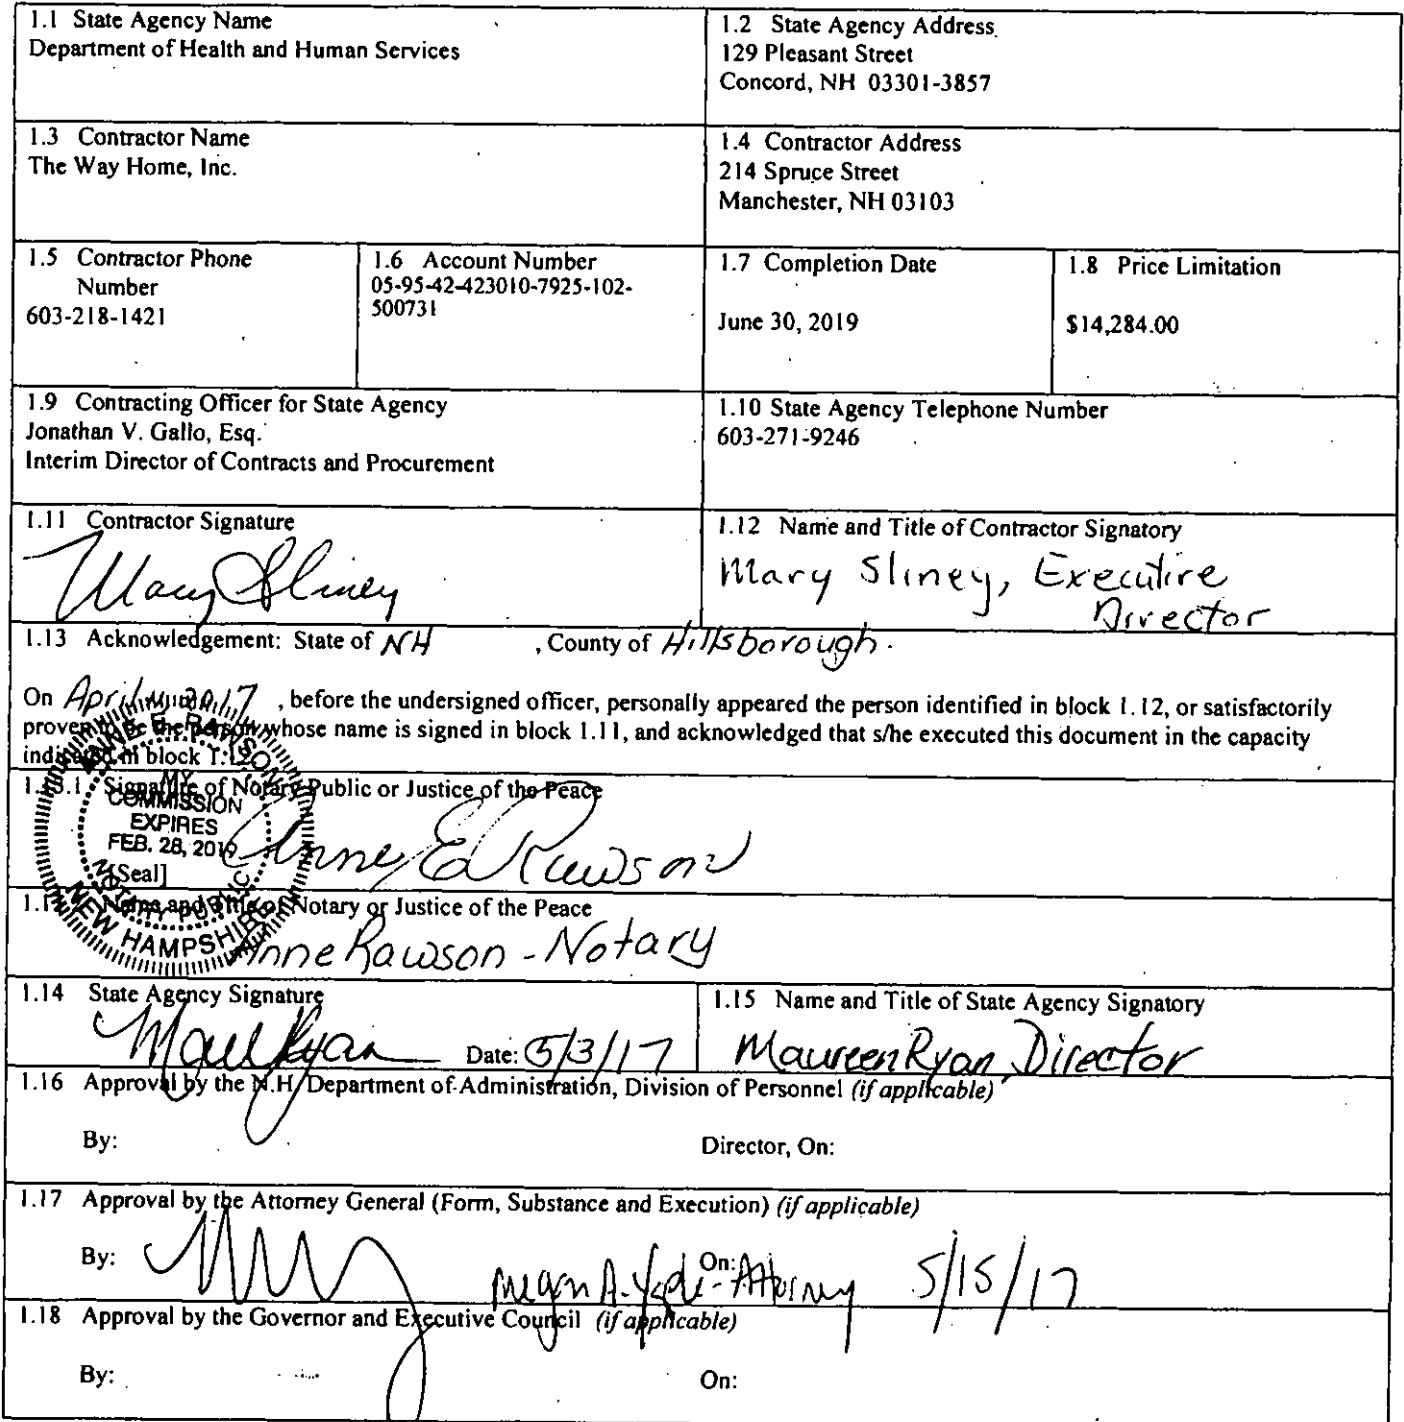 1.1 State Agency Name
Department of Health and Human Services
1.2 State Agency Address
129 Pleasant Street
Concord, NH 03301-3857
1.3 Contractor Name
The Way Home, Inc.
1.4 Contractor Address
214 Spruce Street
Manchester, NH 03103
1.5 Contractor Phone
Number
603-218-1421
1.6 Account Number
05-95-42-423010-7925-102-
500731
1.7 Completion Date
June 30, 2019
1.8 Price Limitation
$14,284.00
1.9 Contracting Officer for State Agency
Jonathan V. Gallo, Esq.
Interim Director of Contracts and Procurement
1.10 State Agency Telephone Number
603-271-9246
1.11 Contractor Signature
Mary Sliney
1.12 Name and Title of Contractor Signatory
Mary Sliney, Executive
Director
1.13 Acknowledgement: State of NH , County of Hillsborough.
On April 2017 , before the undersigned officer, personally appeared the person identified in block 1.12, or satisfactorily
proven to be the person whose name is signed in block 1.11, and acknowledged that s/he executed this document in the capacity
indicated in block 1.12.
1.13.1 Signature of Notary Public or Justice of the Peace
ANNE E. RAWSON
MY
COMMISSION
EXPIRES
FEB. 28, 2019
[Seal]
NOTARY PUBLIC
NEW HAMPSHIRE
Anne E Rawson
Name and Title of Notary or Justice of the Peace
Anne Rawson - Notary
1.14 State Agency Signature
Date: 5/3/17
1.15 Name and Title of State Agency Signatory
Maureen Ryan, Director
1.16 Approval by the N.H. Department of Administration, Division of Personnel (if applicable)
By: Director, On:
1.17 Approval by the Attorney General (Form, Substance and Execution) (if applicable)
By: Megan A. - Attorney On: 5/15/17
1.18 Approval by the Governor and Executive Council (if applicable)
By: On: